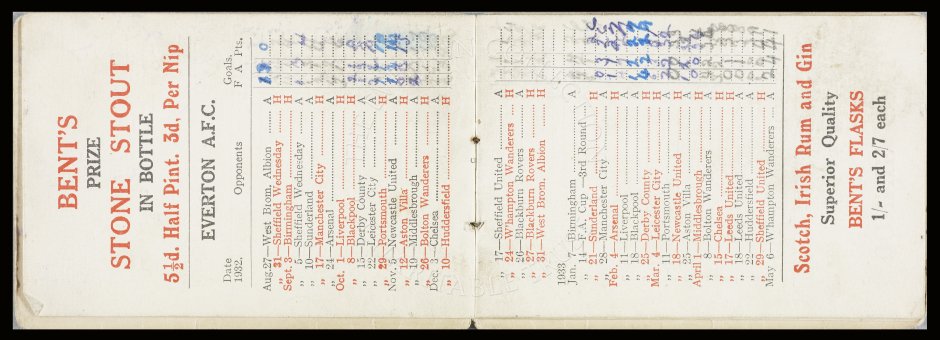 BENT'S
PRIZE
STONE STOUT
IN BOTTLE
5½d. Half Pint. 3d, Per Nip
EVERTON A.F.C.
Date Goals.
1932. Opponents F A Pts.
Aug. 27—West Brom. Albion A
„ 31—Sheffield Wednesday H
Sept. 3—Birmingham H
„ 5—Sheffield Wednesday A
„ 10—Sunderland A
„ 17—Manchester City H
„ 24—Arsenal A
Oct. 1—Liverpool H
„ 8—Blackpool H
„ 15—Derby County A
„ 22—Leicester City A
„ 29—Portsmouth H
Nov. 5—Newcastle United A
„ 12—Aston Villa H
„ 19—Middlesbrough A
„ 26—Bolton Wanderers H
Dec. 3—Chelsea A
„ 10—Huddersfield H
„ 17—Sheffield United A
„ 24—W'hampton Wanderers H
„ 26—Blackburn Rovers A
„ 27—Blackburn Rovers H
„ 31—West Brom. Albion H
1933
Jan. 7—Birmingham A
„ 14—F.A. Cup—3rd Round
„ 21—Sunderland H
„ 28—Manchester City A
Feb. 4—Arsenal H
„ 11—Liverpool A
„ 18—Blackpool A
„ 25—Derby County H
Mar. 4—Leicester City H
„ 11—Portsmouth A
„ 18—Newcastle United H
„ 25—Aston Villa A
April 1—Middlesbrough H
„ 8—Bolton Wanderers A
„ 15—Chelsea H
„ 17—Leeds United H
„ 18—Leeds United A
„ 22—Huddersfield A
„ 29—Sheffield United H
May 6—W'hampton Wanderers A
Scotch, Irish Rum and Gin
Superior Quality
BENT'S FLASKS
1/- and 2/7 each